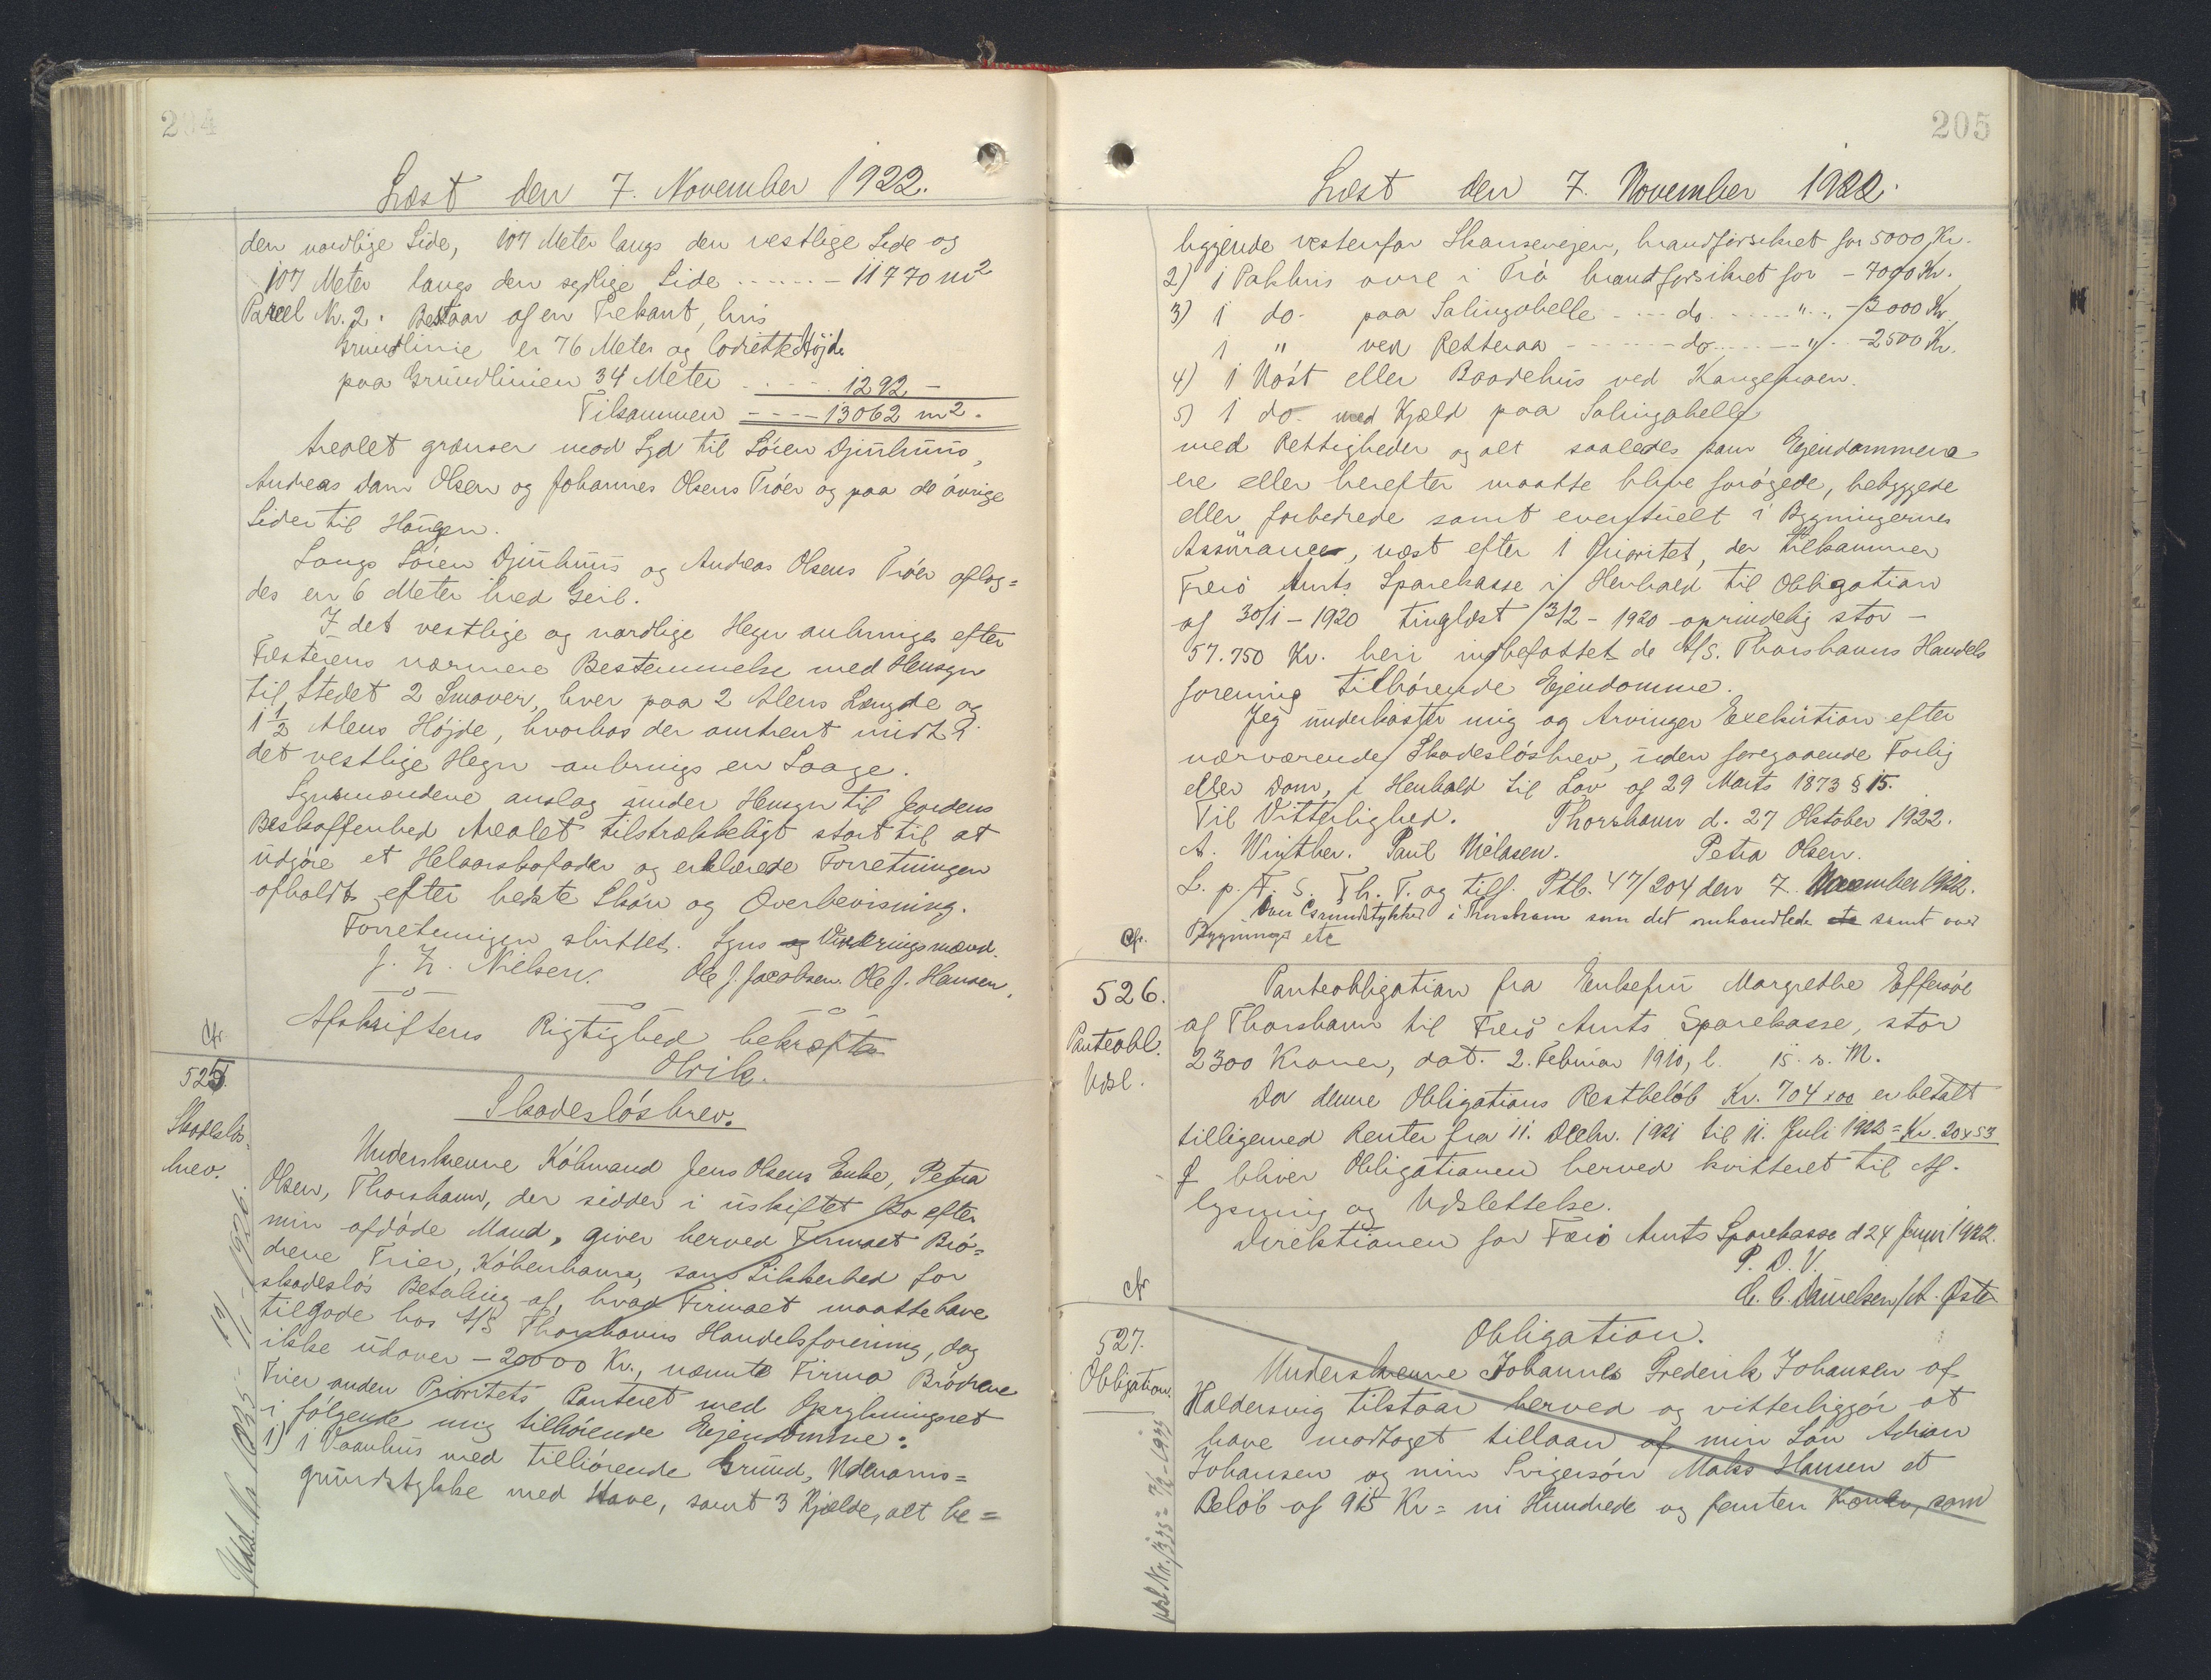 204
Læst den 7. November 1922.
den nordlige Side, 107 Meter langs den vestlige Side og
107 Meter langs den sydlige Side ...... - 11770 m²
Parcel Nr. 2. Bestaar af en Trekant, hvis
Grundlinie er 76 Meter og lodrette Højde
paa Grundlinien 34 Meter ..... 1292 -
Tilsammen ---- 13062 m².
Arealet grænser mod Syd til Sören Djurhuus,
Andreas Dam Olsen og Johannes Olsens Tröer og paa de övrige
Sider til Haugen.
Langs Sören Djurhuus og Andreas Olsens Tröer aflag=
des en 6 Meter bred Geil.
I det vestlige og nordlige Hegn anbringes efter
Fæsterens nærmere Bestemmelse med Hensyn
til Stedet 2 Smover, hver paa 2 Alens Længde og
1½ Alens Højde, hvorhos der omtrent midt i
det vestlige Hegn anbrings en Laage.
Synsmændene anslog under Hensyn til Jordens
Beskaffenhed Arealet tilstrækkeligt stort til at
udgöre et Helaarskofoder og erklærede Forretningen
afholdt efter bedste Skön og Overbevisning.
Forretningen sluttet. Syns og Vurderingsmænd.
J. H. Nielsen. Ole J. Jacobsen. Ole J. Hansen.
Afskriftens Rigtighed bekræftes
Olrik.
Cfr.
525.
Skadeslös-
brev.
Skadeslösbrev.
Underskrevne Köbmand Jens Olsens Enke, Petra
Olsen, Thorshavn, der sidder i uskiftet Bo efter
min afdöde Mand, giver herved Firmaet Brö=
drene Trier, Köbenhavn, som Sikkerhed for
skadeslös Betaling af, hvad Firmaet maatte have
tilgode hos A/S Thorshavns Handelsforening, dog
ikke udover - 20000 Kr., nævnte Firma Brödrene
Trier anden Prioritets Panteret med Oprykningsret
i fölgende mig tilhörende Ejendomme:
1) 1 Vaanhus med tilhörende Grund, Udenoms=
grundstykke med Have, samt 3 Kjælde, alt be=
205
Læst den 7. November 1922.
liggende vestenfor Skansevejen, brandforsikret for 5000 Kr.
2) 1 Pakhus övre i Trö brandforsikret for - 7000 Kr.
3) 1 do. paa Salingabelle --- do. ..... " .. - 3000 Kr
1 " ved Retteraa ------ do ..... " .. - 2500 Kr.
4) 1 Nöst eller Baadehus ved Kangemoen.
5) 1 do. med Kjæld paa Salingabelle
med Rettigheder og alt saaledes som Ejendommene
ere eller herefter maatte blive forögede, bebyggede
eller forbedrede samt eventuelt i Bygningernes
Assurancer, næst efter 1 Prioritet, der tilkommer
Færö Amts Sparekasse i Henhold til Obligation
af 30/1 - 1920 tinglæst 3/2 - 1920 oprindelig stor -
57.750 Kr. heri indbefattet de A/S. Thorshavns Handels
forening tilhörende Ejendomme.
Jeg underkaster mig og Arvinger Exekution efter
nærværende Skadeslösbrev, uden foregaaende Forlig
eller Dom, i Henhold til Lov af 29 Marts 1873 § 15.
Til Vitterlighed. Thorshavn d. 27 Oktober 1922.
A. Winther. Paul Nielsen. Petra Olsen.
L. p. F. S. Th. T. og tilf. Ptb. 47/204 den 7. November 1922.
Over Grundstykket i Thorshavn som det omhandlede etc samt over
Bygninger etc
Cfr.
526.
Panteobl.
Udsl.
Panteobligation fra Enkefru Margrethe Effersöe
af Thorshavn til Færö Amts Sparekasse, stor
2300 Kroner, dat. 2. Februar 1910, l. 15. s. M.
Da denne Obligations Restbelöb Kr. 704 x 00 er betalt
tilligemed Renter fra 11. Decbr. 1921 til 11. Juli 1922 = Kr. 20 x 53
bliver Obligationen herved kvitteret til Af-
lysning og Udslettelse.
Direktionen for Færö Amts Sparekasse d 24 Juni 1922.
P. D. V.
C. C. Danielsen / A. Öster
Cfr
527.
Obligation.
Obligation.
Underskrevne Johannes Frederik Johansen af
Haldersvig tilstaar herved og vitterliggjör at
have modtaget tillaan af min Sön Adrian
Johansen og min Svigersön Maks Hansen et
Belöb af 915 Kr = ni Hundrede og femten Kroner, som